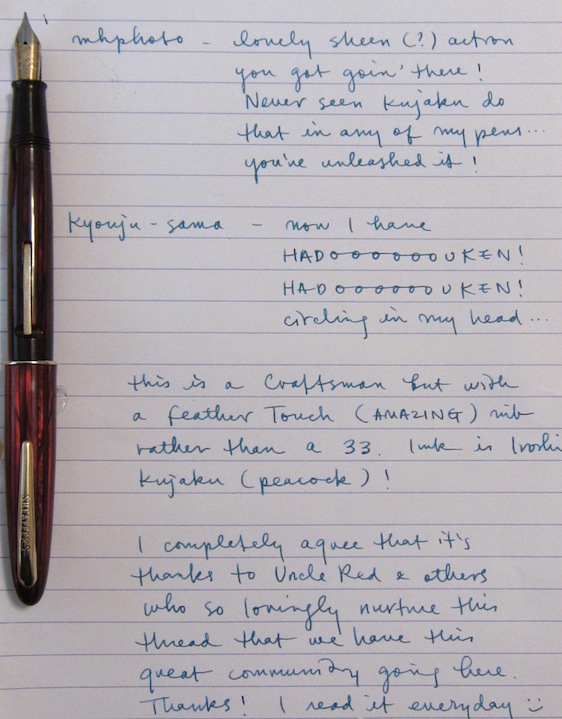 mhphoto - lovely sheen (?) action
you got goin' there!
Never seen Kujaku do
that in any of my pens...
you've unleashed it!
Kyouju-sama - now I have
HADOOOOOOOUKEN!
HADOOOOOOUKEN!
circling in my head...
this is a Craftsman but with
a Feather Touch (AMAZING) nib
rather than a 33. Ink is Iroshi
Kujaku (peacock)!
I completely agree that it's
thanks to Uncle Red & others
who so lovingly nurture this
thread that we have this
great community going here.
Thanks! I read it everyday :)
SHEAFFER'S